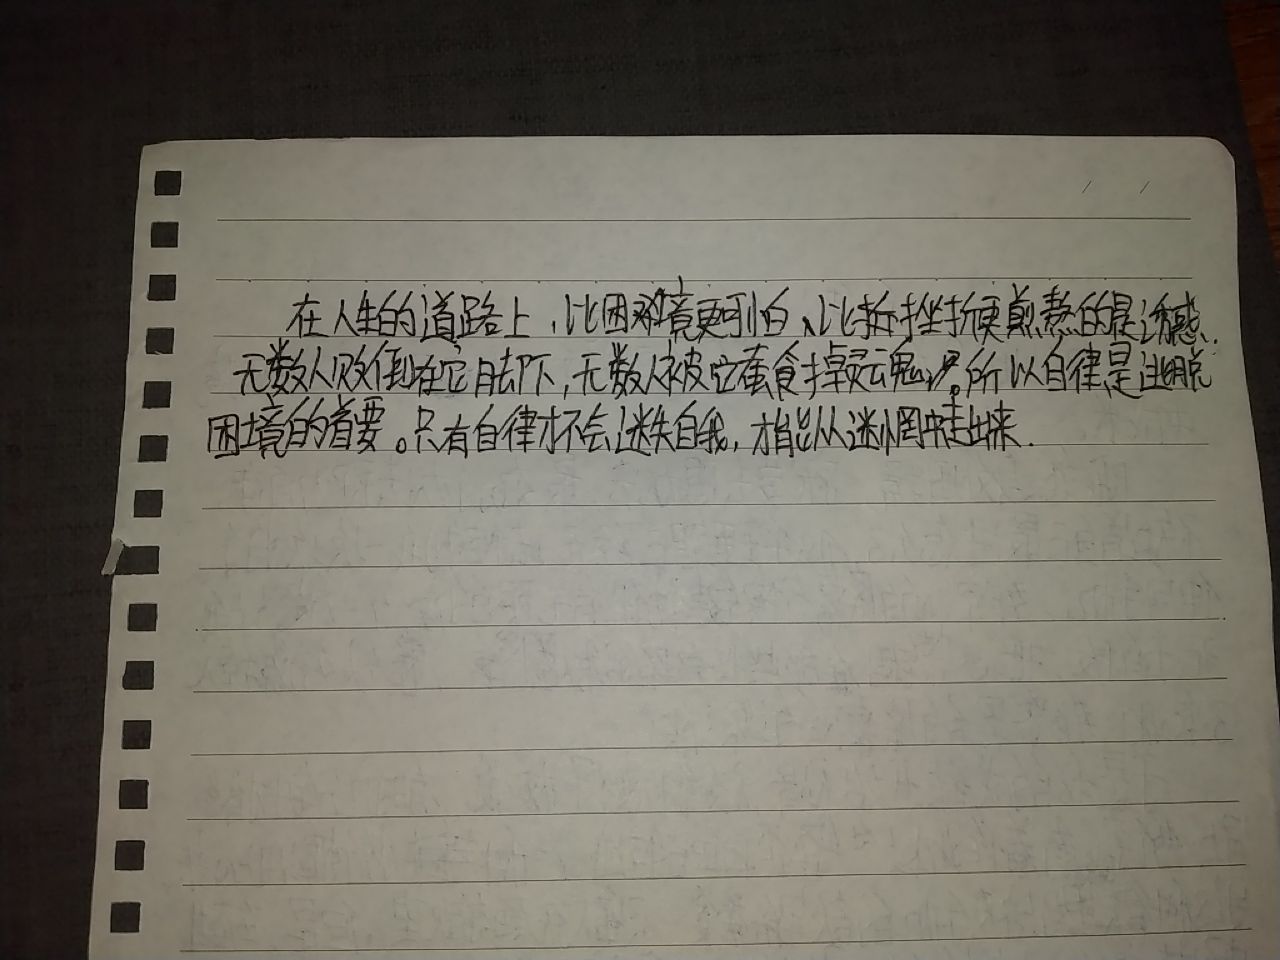 在人生的道路上,比困难境更可怕、比挫折更煎熬的是诱惑.
无数人败倒在它脚下,无数人被它蚕食掉灵魂。所以自律是逃脱
困境的首要。只有自律才不会迷失自我,才能从迷惘中走出来.